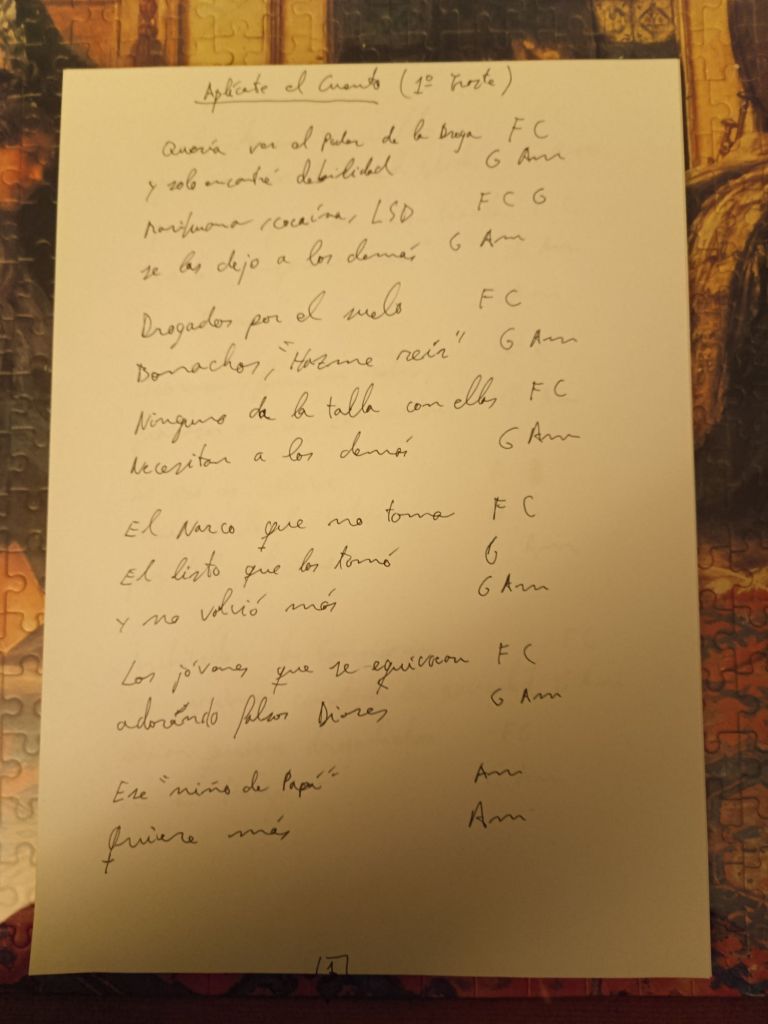 Aplícate el Cuento (1º Parte)
Quería ver el Poder de la Droga F C
y solo encontré debilidad G Am
Marihuana, cocaína, LSD F C G
se las dejo a los demás G Am
Drogados por el suelo F C
Borrachos, "Hazme reír" G Am
Ninguno da la talla con ellos F C
Necesitan a los demás G Am
El Narco que no toma F C
El listo que los tomó G
y no volvió más G Am
Los jóvenes que se equivocan F C
adorando falsos Dioses G Am
Ese "niño de Papá" Am
Quiere más Am
1